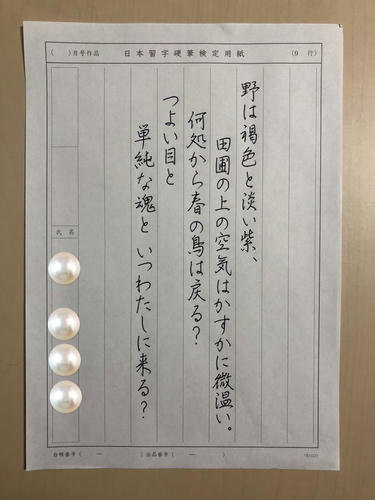 ( )月号作品 日本習字硬筆検定用紙 (9 行)
野は褐色と淡い紫、
田圃の上の空気はかすかに微温い。
何処から春の鳥は戻る?
つよい目と
単純な魂と いつわたしに来る?
氏名
台帳番号( ー ) 出品番号( ー )